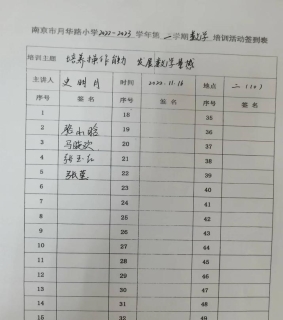 南京市月华路小学2022-2023学年第一学期数学培训活动签到表
培训主题 培养操作能力 发展数学思维
主讲人 史明月 时间 2022.11.16 地点 二(4)
序号 签名 序号 签名 序号 签名
1 18 35
2 19 36
3 马晓欢 20 37
4 张玉红 21 38
5 张蕙 22 39
6 23 40
7 24 41
8 25 42
9 26 43
10 27 44
11 28 45
12 29 46
13 30 47
14 31 48
15 32 49